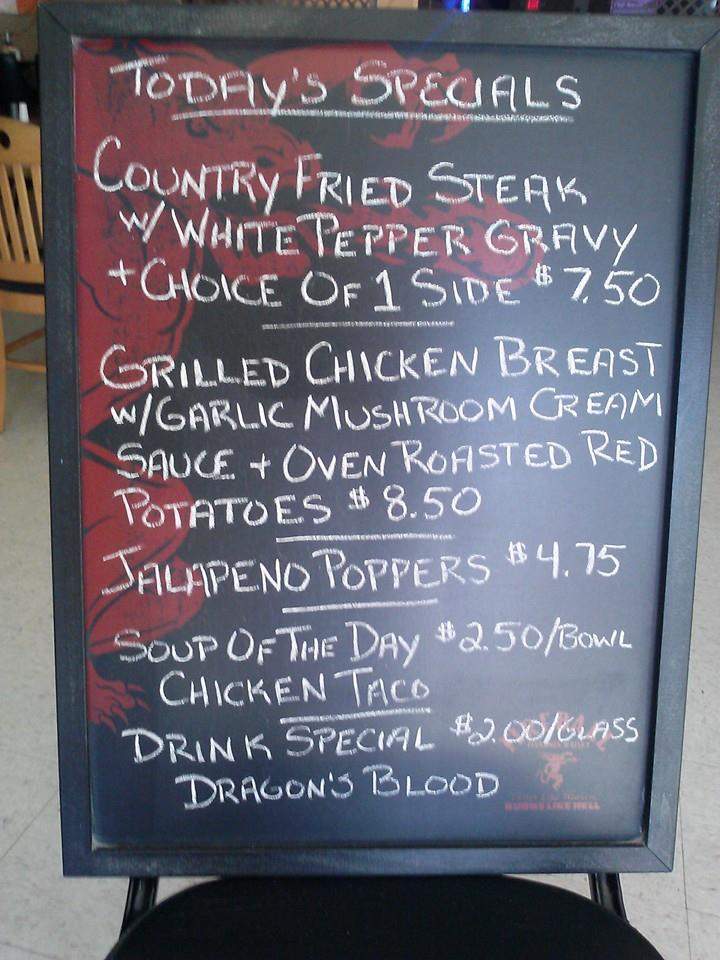 TODAY'S SPECIALS
COUNTRY FRIED STEAK
W/ WHITE PEPPER GRAVY
+ CHOICE OF 1 SIDE $7.50
GRILLED CHICKEN BREAST
W/GARLIC MUSHROOM CREAM
SAUCE + OVEN ROASTED RED
POTATOES $8.50
JALAPENO POPPERS $4.75
SOUP OF THE DAY $2.50/BOWL
CHICKEN TACO
DRINK SPECIAL $2.00/GLASS
DRAGON'S BLOOD
BURNS LIKE HELL